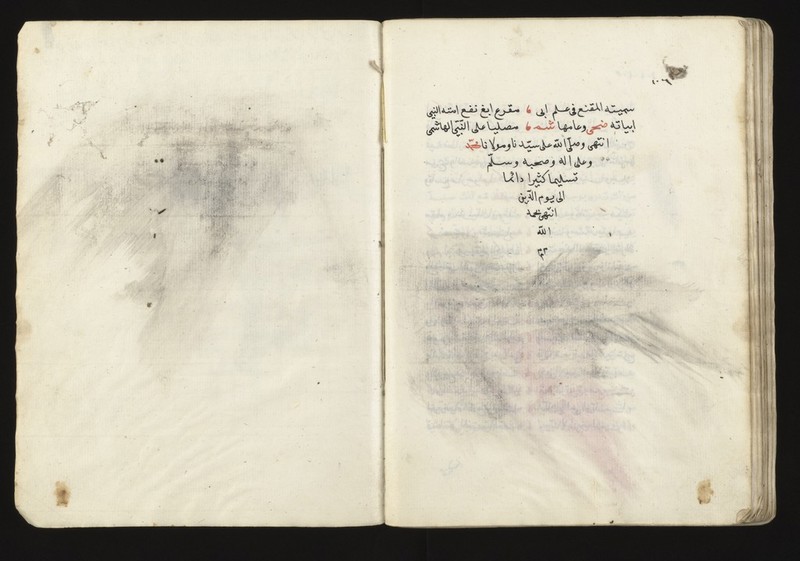 سميته المقنع فى علم ابى مقرع ابغ نفع امته النبى
ابياته ضحى وعامها شمه مصليا على النبى الهاشمى
انتهى وصلى الله على سيدنا ومولانا محمد
وعلى اله وصحبه وسلم
تسليما كثيرا دائما
الى يوم الدين
انتهى بحمد
الله